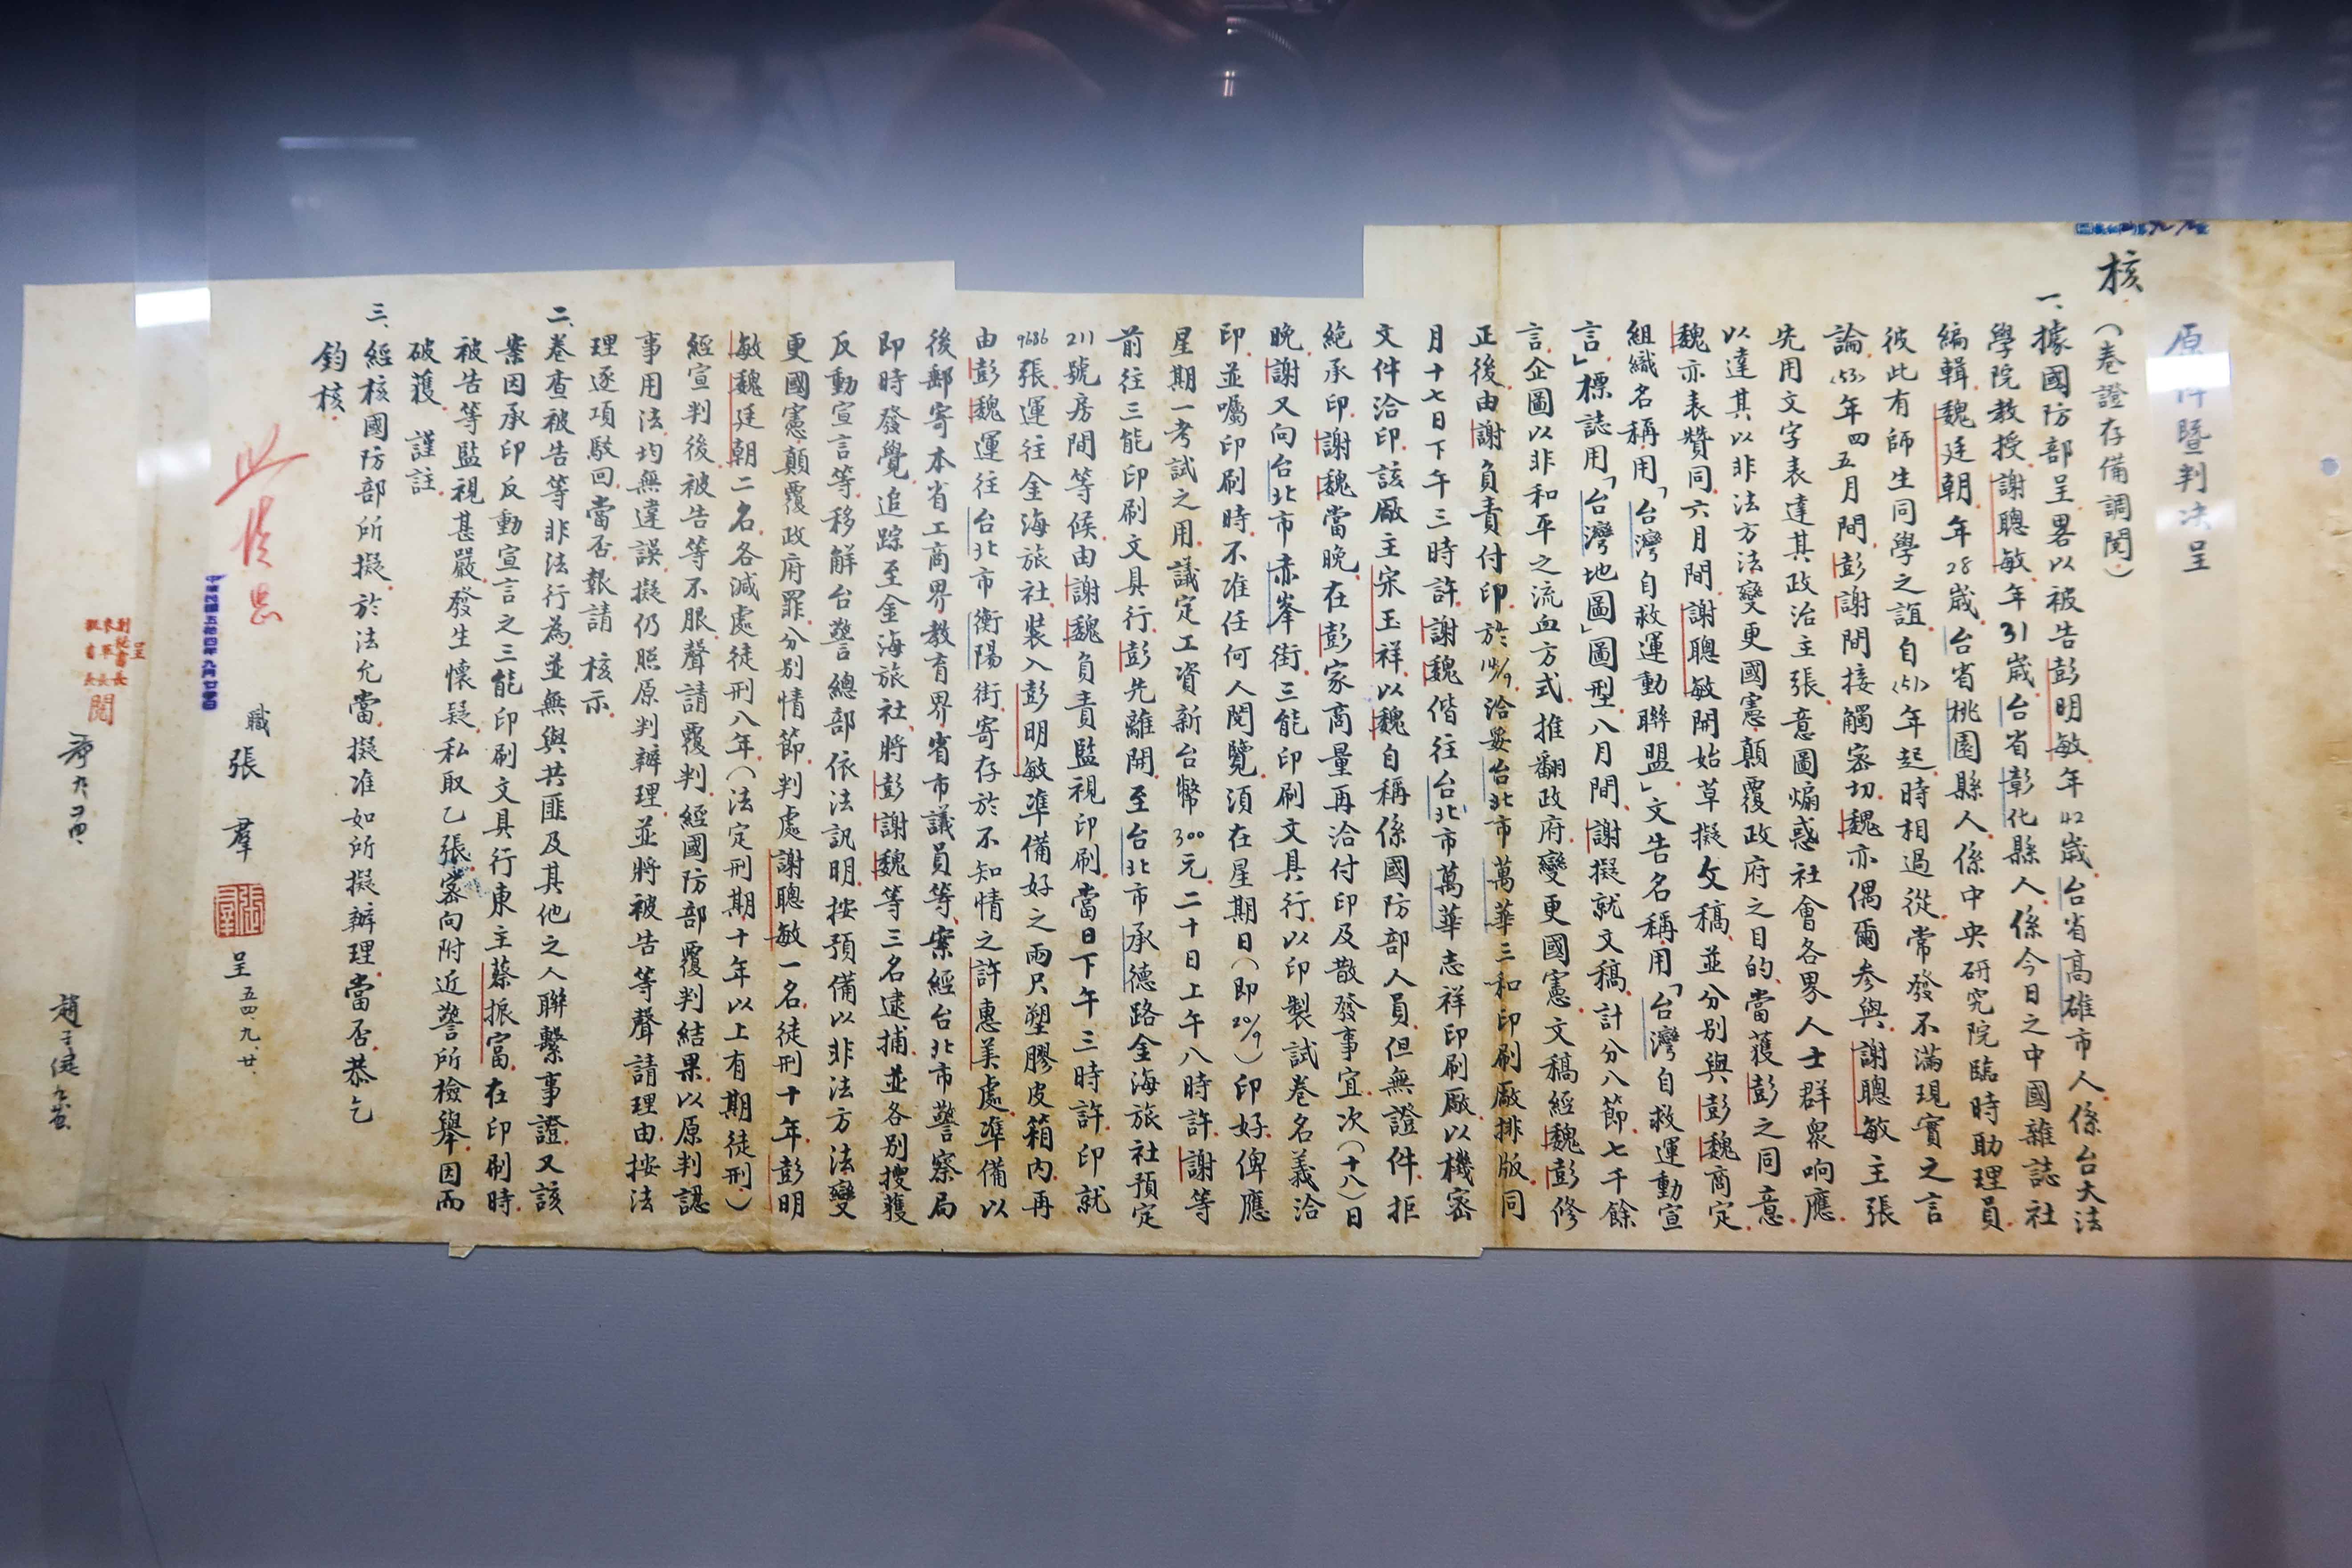 原件暨判決呈
核
（卷證存備調閱）
一、據國防部呈畧以被告彭明敏年42歲台省高雄市人係台大法
學院教授謝聰敏年31歲台省彰化縣人係今日之中國雜誌社
編輯魏廷朝年28歲台省桃園縣人係中央研究院臨時助理員
彼此有師生同學之誼自(51)年起時相過從常發不滿現實之言
論(53)年四五月間彭謝間接觸密切魏亦偶爾參與謝聰敏主張
先用文字表達其政治主張意圖煽惑社會各界人士群眾响應
以達其以非法方法變更國憲顛覆政府之目的當獲彭之同意
魏亦表贊同六月間謝聰敏開始草擬文稿並分別與彭魏商定
組織名稱用「台灣自救運動聯盟」文告名稱用「台灣自救運動宣
言」標誌用「台灣地圖」圖型八月間謝擬就文稿計分八節七千餘
言企圖以非和平之流血方式推翻政府變更國憲文稿經魏彭修
正後由謝負責付印於洽妥台北市萬華三和印刷廠排版同
月十七日下午三時許謝魏偕往台北市萬華志祥印刷廠以機密
文件洽印該廠主宋玉祥以魏自稱係國防部人員但無證件拒
絕承印謝魏當晚在彭家商量再洽付印及散發事宜次（十八）日
晚謝又向台北市赤峯街三能印刷文具行以印製試卷名義洽
印並囑印刷時不准任何人閱覽須在星期日（即20/9）印好俾應
星期一考試之用議定工資新台幣300元二十日上午八時許謝等
前往三能印刷文具行彭先離開至台北市承德路金海旅社預定
211號房間等候由謝魏負責監視印刷當日下午三時許印就
9686張運往金海旅社裝入彭明敏準備好之兩只塑膠皮箱內再
由彭魏運往台北市衡陽街寄存於不知情之許惠美處準備以
後郵寄本省工商界教育界省市議員等案經台北市警察局
即時發覺追踪至金海旅社將彭謝魏等三名逮捕並各別搜獲
反動宣言等移解台警總部依法訊明按預備以非法方法變
更國憲顛覆政府罪分別情節判處謝聰敏一名徒刑十年彭明
敏魏廷朝二名各減處徒刑八年（法定刑期十年以上有期徒刑）
經宣判後被告等不服聲請覆判經國防部覆判結果以原判認
事用法均無違誤擬仍照原判辦理並將被告等聲請理由按法
理逐項駁回當否報請 核示
二、卷查被告等非法行為並無與共匪及其他之人聯繫事證又該
案因承印反動宣言之三能印刷文具行東主蔡振富在印刷時
被告等監視甚嚴發生懷疑私取乙張密向附近警所檢舉因而
破獲 謹註
三、經核國防部所擬於法允當擬准如所擬辦理當否恭乞
鈞核
職 張羣 呈 五四、九、廿、
中華民國五拾四年九月
呈
閱